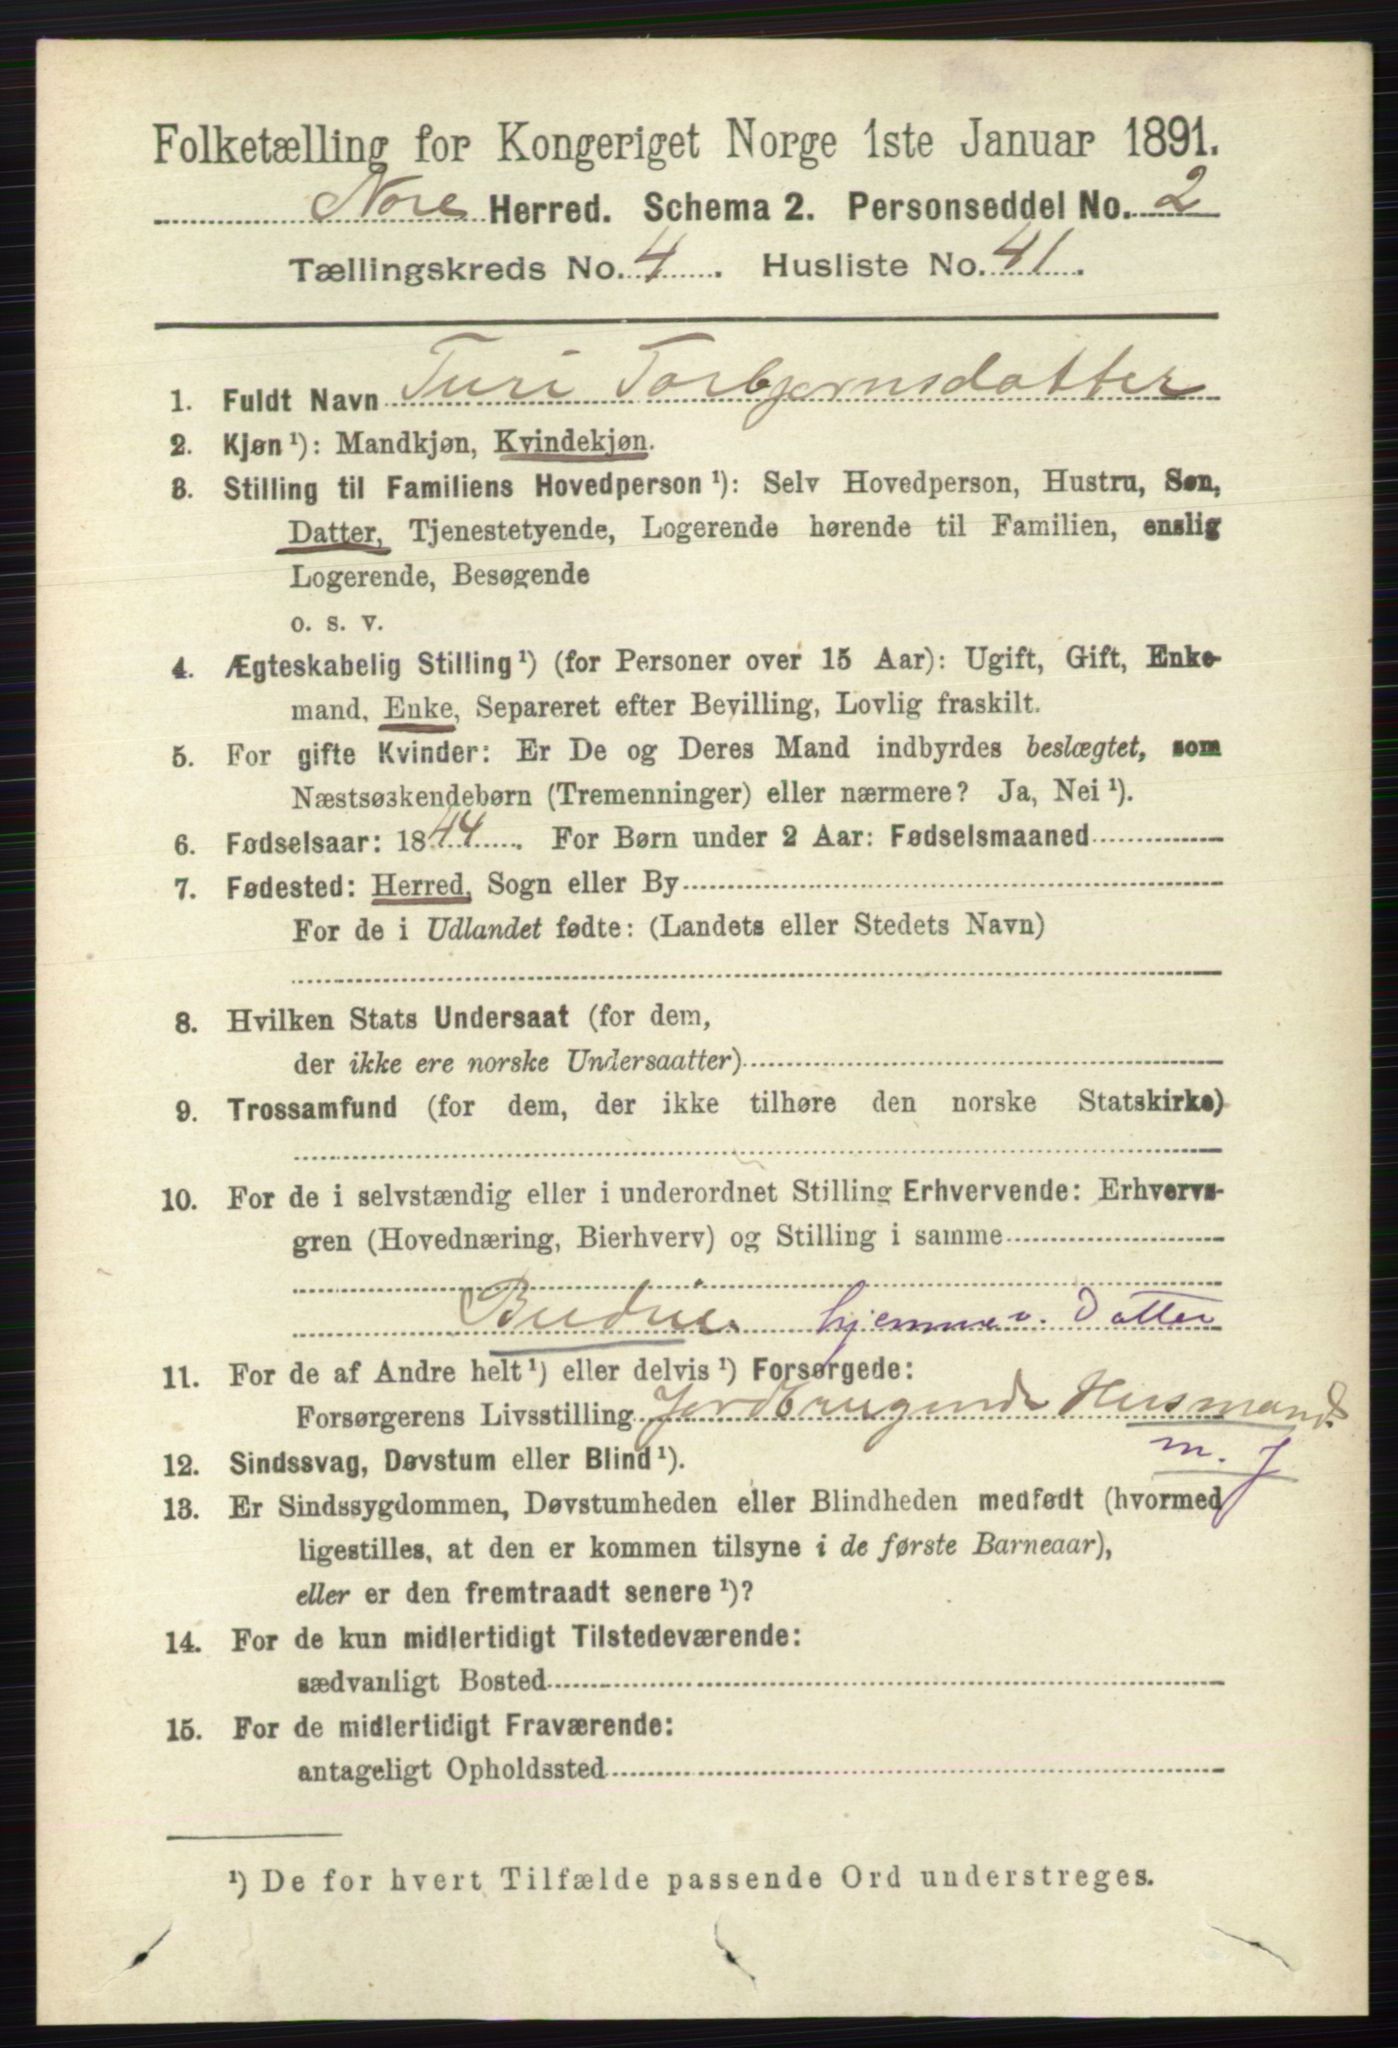 Folketælling for Kongeriget Norge 1ste Januar 1891.
Nore Herred. Schema 2. Personseddel No. 2
Tællingskreds No. 4. Husliste No. 41.
1. Fuldt Navn Turi Torbjørnsdatter
2. Kjøn¹): Mandkjøn, Kvindekjøn.
3. Stilling til Familiens Hovedperson¹): Selv Hovedperson, Hustru, Søn,
Datter, Tjenestetyende, Logerende hørende til Familien, enslig
Logerende, Besøgende
o. s. v.
4. Ægteskabelig Stilling¹) (for Personer over 15 Aar): Ugift, Gift, Enke-
mand, Enke, Separeret efter Bevilling, Lovlig fraskilt.
5. For gifte Kvinder: Er De og Deres Mand indbyrdes beslægtet, som
Næstsøskendebørn (Tremenninger) eller nærmere? Ja, Nei¹).
6. Fødselsaar: 1844. For Børn under 2 Aar: Fødselsmaaned
7. Fødested: Herred, Sogn eller By
For de i Udlandet fødte: (Landets eller Stedets Navn)
8. Hvilken Stats Undersaat (for dem,
der ikke ere norske Undersaatter)
9. Trossamfund (for dem, der ikke tilhøre den norske Statskirke)
10. For de i selvstændig eller i underordnet Stilling Erhvervende: Erhvervs-
gren (Hovednæring, Bierhverv) og Stilling i samme
Budeie. hjemmev. Datter
11. For de af Andre helt¹) eller delvis¹) Forsørgede:
Forsørgerens Livsstilling Jordbrugende Husmand.
m. J
12. Sindssvag, Døvstum eller Blind¹).
13. Er Sindssygdommen, Døvstumheden eller Blindheden medfødt (hvormed
ligestilles, at den er kommen tilsyne i de første Barneaar),
eller er den fremtraadt senere¹)?
14. For de kun midlertidigt Tilstedeværende:
sædvanligt Bosted
15. For de midlertidigt Fraværende:
antageligt Opholdssted
¹) De for hvert Tilfælde passende Ord understreges.